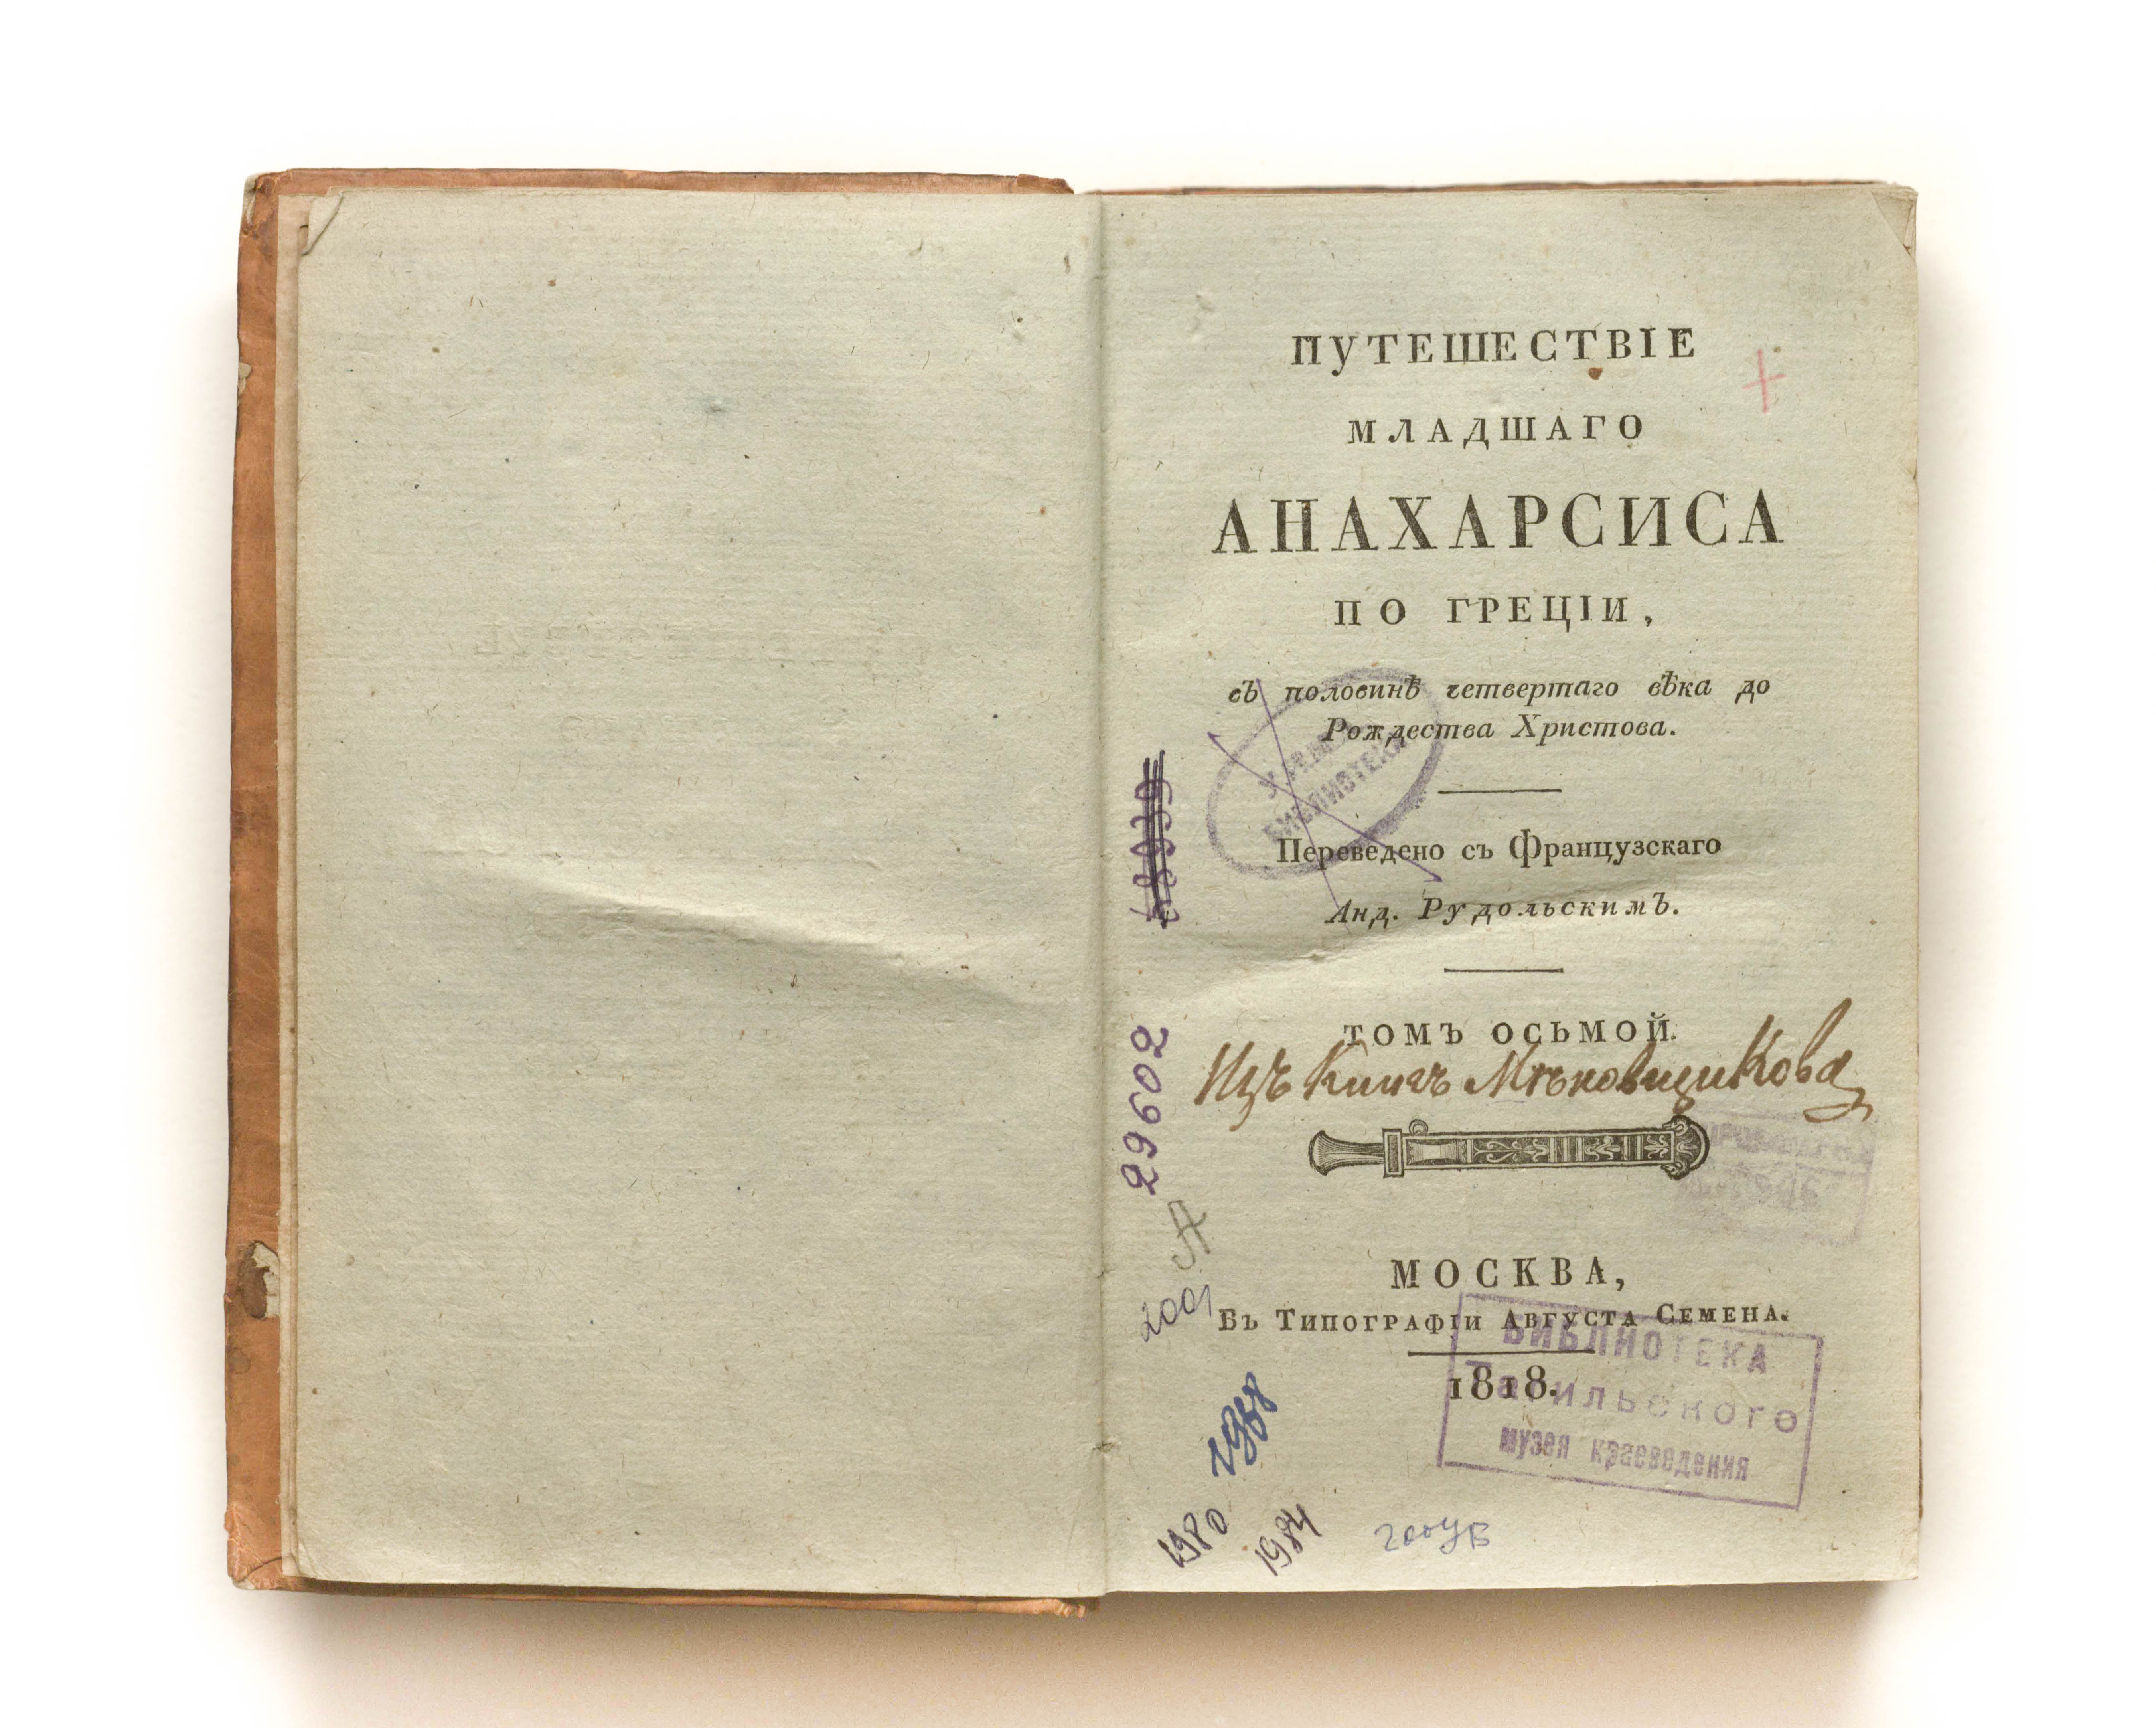 ПУТЕШЕСТВІЕ
МЛАДШАГО
АНАХАРСИСА
ПО ГРЕЦІИ,
въ половинѣ четвертаго вѣка до
Рождества Христова.
БИБЛИОТЕКА
Переведено съ Французскаго
Анд. Рудольскимъ.
ТОМЪ ОСЬМОЙ.
Изъ Книгъ Мѣновщикова
29602
А
МОСКВА,
Въ Типографіи Августа Семена.
1818.
БИБЛИОТЕКА
музея краеведения
1980
1984